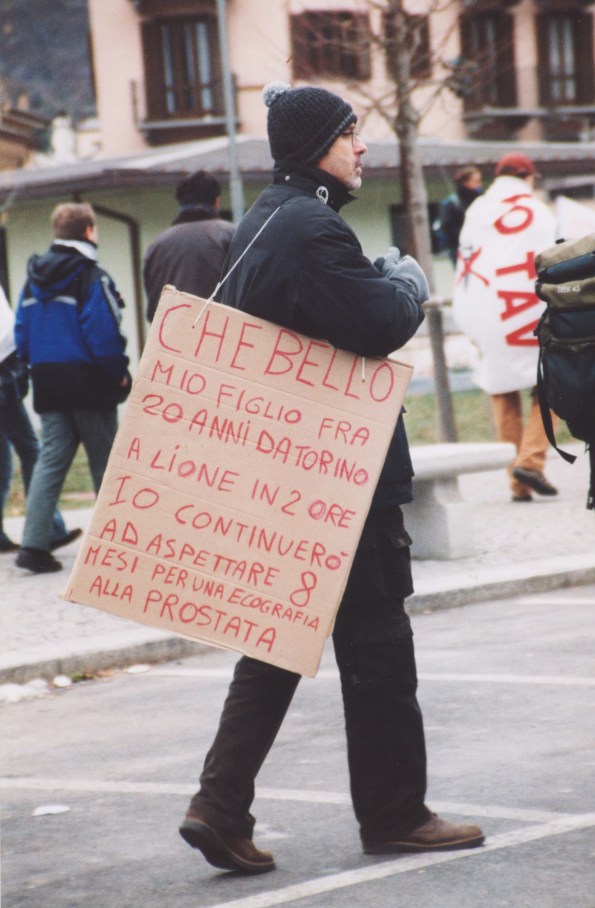 CHE BELLO
MIO FIGLIO FRA
20 ANNI DA TORINO
A LIONE IN 2 ORE
IO CONTINUERÒ
AD ASPETTARE 8
MESI PER UNA ECOGRAFIA
ALLA PROSTATA
O
TAV